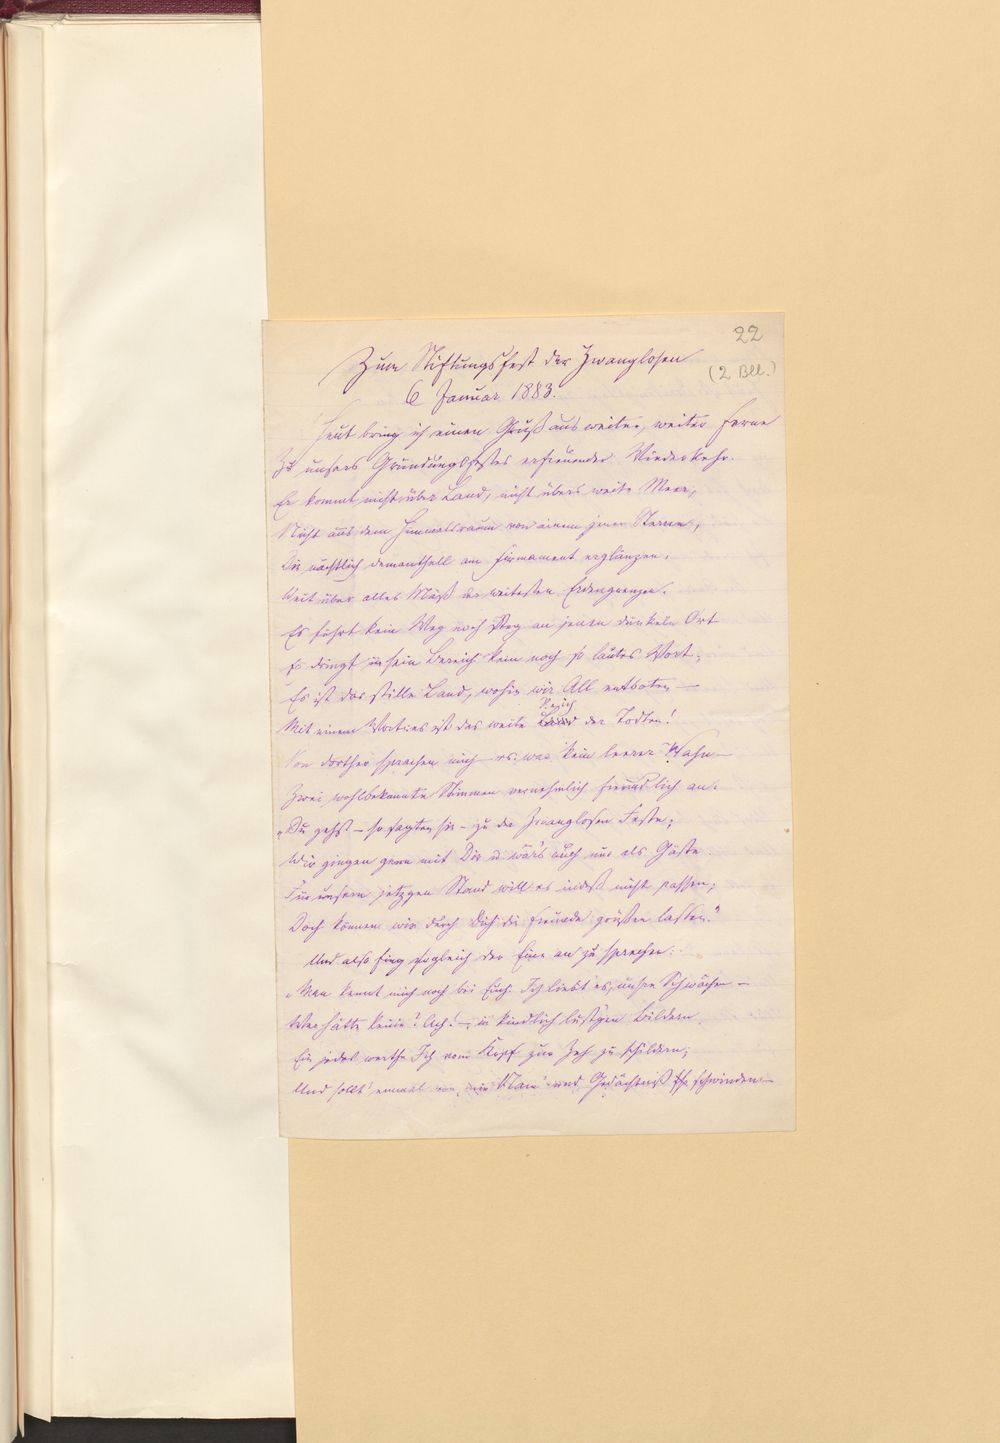 22
(2 Bll.)
Zum Stiftungsfest der Zwanglosen
6 Januar 1883.
Heut bring ich einen Gruß aus weiter, weiter Ferne
Zu unsers Gründungsfestes erfreuender Wiederkehr.
Er kommt nicht über Land, nicht übers weite Meer,
Nicht aus dem Himmelsraum von einem jener Sterne,
Die nächtlich demanthell am Firmament erglänzen.
Weit über alles Maß der weitesten Erdengrenzen.
Es führt kein Weg noch Steg an jenen dunkeln Ort
Es dringt in sein Bereich kein noch so lautes Wort;
Es ist das stille Land, wohin wir All entboten —
Reich
Mit einem Wort: es ist das weite Land der Todten!
Von dorther sprachen mich — es war kein leerer Wahn —
Zwei wohlbekannte Stimmen vernehmlich freundlich an:
„Du gehst — so sagten sie — zu der Zwanglosen Feste;
Wir gingen gern mit Dir u. wär's auch nur als Gäste.
Für unsern jetzgen Stand will es indeß nicht passen;
Doch können wir durch Dich die Freunde grüßen lassen."
Und also fing sogleich der Eine an zu sprechen:
„Man kennt mich noch bei Euch. Ich liebt' es, unsre Schwächen —
Wer hätte keine? Ach! — in kindlich lust'gen Bildern
Ein jedes werthe Ich vom Kopf zur Zeh zu schildern;
Und sollt' einmal mein Nam' und Gedächtniß schwinden —